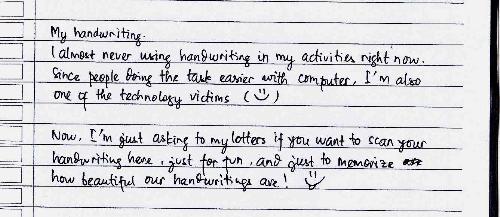 My handwriting.
I almost never using handwriting in my activities right now.
Since people doing the task easier with computer, I'm also
one of the technology victims ( )
Now, I'm just asking to my lotters if you want to scan your
handwriting here, just for fun, and just to memorize
how beautiful our handwritings are!